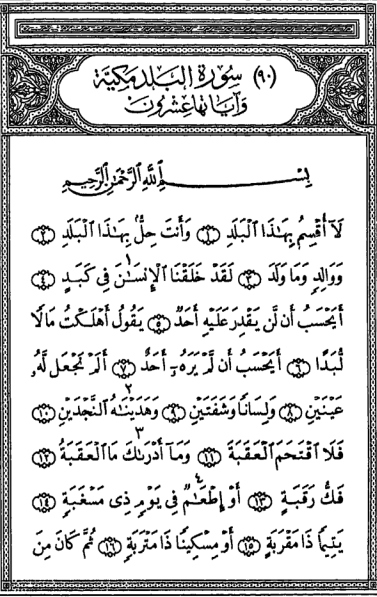 (٩٠) سُورَةُ الْبَلَدِ مَكِّيَّة
وَآيَاتُهَا عِشْرُونَ
بِسْمِ اللَّهِ الرَّحْمَٰنِ الرَّحِيمِ
لَآ أُقْسِمُ بِهَٰذَا ٱلْبَلَدِ ١ وَأَنتَ حِلٌّۢ بِهَٰذَا ٱلْبَلَدِ ٢
وَوَالِدٍ وَمَا وَلَدَ ٣ لَقَدْ خَلَقْنَا ٱلْإِنسَٰنَ فِى كَبَدٍ ٤
أَيَحْسَبُ أَن لَّن يَقْدِرَ عَلَيْهِ أَحَدٌ ٥ يَقُولُ أَهْلَكْتُ مَالًا
لُّبَدًا ٦ أَيَحْسَبُ أَن لَّمْ يَرَهُۥٓ أَحَدٌ ٧ أَلَمْ نَجْعَل لَّهُۥ
عَيْنَيْنِ ٨ وَلِسَانًا وَشَفَتَيْنِ ٩ وَهَدَيْنَٰهُ ٢ ٱلنَّجْدَيْنِ ١٠
فَلَا ٱقْتَحَمَ ٱلْعَقَبَةَ ١١ وَمَآ أَدْرَىٰكَ مَا ٱلْعَقَبَةُ ١٢
٣
فَكُّ رَقَبَةٍ ١٣ أَوْ إِطْعَٰمٌ فِى يَوْمٍ ذِى مَسْغَبَةٍ ١٤
يَتِيمًا ذَا مَقْرَبَةٍ ١٥ أَوْ مِسْكِينًا ذَا مَتْرَبَةٍ ١٦ ثُمَّ كَانَ مِنَ